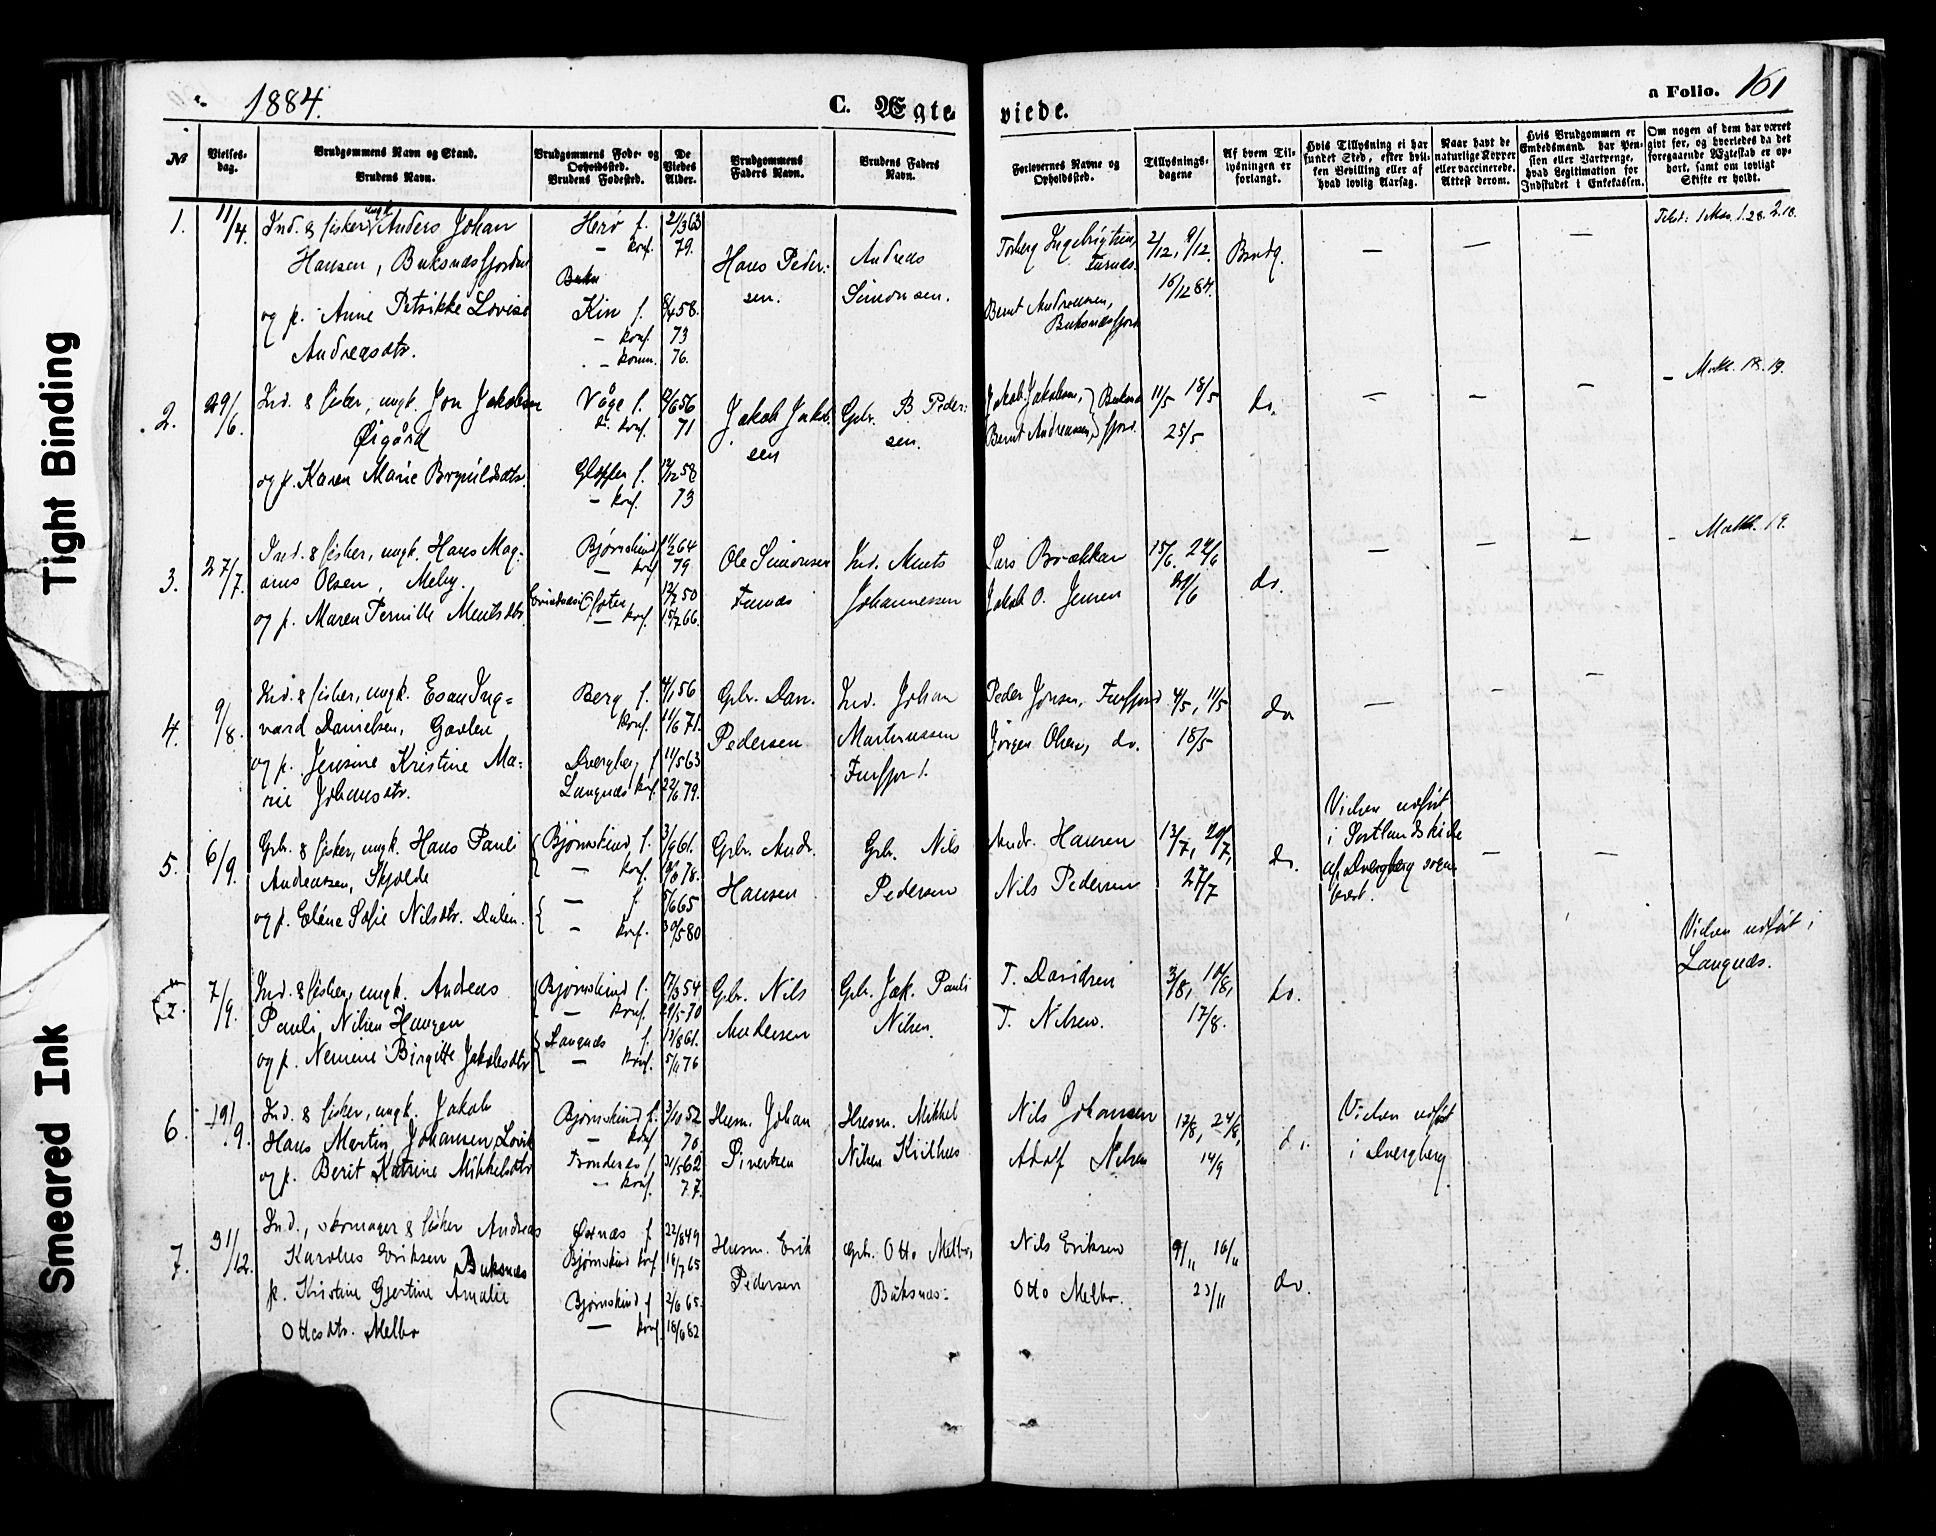 1884.
C. Ægte
viede.
a Folio. 161
No
Vielses-
dag.
Brudgommens Navn og Stand.
Brudens Navn.
Brudgommens Føde- og
Opholdssted.
Brudens Fødested.
De
Viedes
Alder.
Brudgommens
Faders Navn.
Brudens Faders
Navn.
Forlovernes Navne og
Opholdssted.
Tillysnings-
dagene
Af hvem Til-
lysningen er
forlangt.
Hvis Tillysning ei har
fundet Sted, efter hvil-
ken Bevilling eller af
hvad lovlig Aarsag.
Naar havt de
naturlige Kopper
eller vaccinerede.
Attest derom.
Hvis Brudgommen er
Embedsmand har Pen-
sion eller Vartpenge,
hvad Legitimation for
Indskudet i Enkekassen.
Om nogen af dem har været
gift før, og hvorledes da det
foregaaende Ægteskab er op-
hørt, samt om lovligt
Skifte er holdt.
1. 11/4.
Ind. & fisker ungk. Anders Johan
Hansen, Buksnæsfjorden
og p. Anne Petrikke Lovise
Andreasdtr.
Herø f. 2/3 63
— konf. 79.
Kin f. 8/4 58.
— konf. 73
— komm. 76.
Hans Peder-
sen.
Andreas
Simonsen.
Torberg Ingebrigtsen,
Furnæs.
Bernt Andreassen,
Buksnæsfjord
2/12, 9/12,
16/12 84.
Brudg.
— — —
1 Mos. 1.28. 2.18.
2. 29/6.
Ind. & fisker, ungk. Jon Jakobsen
Øigård
og p. Karen Marie Brynildsdtr.
Våge f. 8/6 56
konf. 71
Gloppen f. 12/12 58
— konf. 73
Jakob Jakob-
sen
Gbr. B. Peder-
sen.
Jakob Jakobsen,
Bernt Andreassen,
11/5 18/5
25/5
do.
— — —
— Matth. 18. 19.
3. 27/7.
Ind. & fisker, ungk. Hans Mag-
nus Olsen, Melby.
og p. Maren Pernille Mentsdtr.
Bjørnskind 64
— konf 79
— konf. 15/7 66.
Ole Simonsen
Furnæs
Ind. Ments
Johannessen
Lars Brækkan
Jakob O. Jensen
15/6. 22/6
29/6
do.
— — —
— Matth. 19.
4. 9/8.
Ind. & fisker, ungk. Esau Ing-
vard Danielsen, Gavlen
og p. Jensine Kristine Ma-
rie Johansdtr.
Berg f. 4/1 56
konf. 11/6 71.
Dverberg f 11/5 63
Langnæs konf. 22/6 79.
Gbr. Dan.
Pedersen
Ind. Johan
Martinussen
Furfjor.
Peder Jonsen, Furfjord
Jörgen Olsen, do.
4/5, 11/5
18/5
do
— — —
5. 6/9.
Gbr. & fisker, ungk. Hans Pauli
Andreassen, Skjolde
og p. Elene Sofie Nilsdtr. Dalen.
Bjørnskind f. 3/9 61.
— konf. 78.
— f 5/6 65
— konf. 30/5 80
Gbr. Andr.
Hansen
Gbr. Nils
Pedersen
Andr. Hansen
Nils Pedersen
13/7, 20/7,
27/7
do.
Vielsen udført
i Sortlands kirke
af Dverberg sogne-
præst.
— —
7. 7/9.
Ind. & fisker, ungk. Andreas
Pauli Nilsen Haugen
og p. Nemine Birgitte Jakobsdtr.
Bjørnskind f. 17/3 54
— konf. 29/5 70
Langnæs f. 13/8 61.
— konf. 76
Gbr. Nils
Andersen
Gbr. Jak. Pauli
Nilsen.
T. Davidsen
T. Nilsen.
3/8, 10/8,
17/8.
do.
Vielsen udført i
Langnæs.
6. 19/9.
Ind. & fisker, ungk. Jakob
Hans Martin Johansen, Lovik
og p. Berit Katrine Mikkelsdtr
Bjørnskind f. 3/10 52
— konf 70
Trondenæs f. 31/5 62
— konf. 77.
Husm. Johan
Sivertsen
Husm. Mikkel
Nilsen
Nils Johansen
Adolf Nilsen
17/8, 24/8,
14/9
do.
Vielsen udført
i Dverberg
7. 31/12.
Ind., skomager & fisker Andreas
Karolus Eriksen Buksnæs
p. Kristine Gjertine Amalie
Ottesdtr. Melbo
Øxnæs f 22/8 49
Bjørnskind konf 65
Bjørnskind f 2/6 65.
— konf. 18/6 82
Husm. Erik
Pedersen
Gbr. Otto Melbo,
Buksnæs.
Nils Eriksen
Otto Melbo.
9/11 16/11
23/11
do.
Tight Binding
Smeared Ink